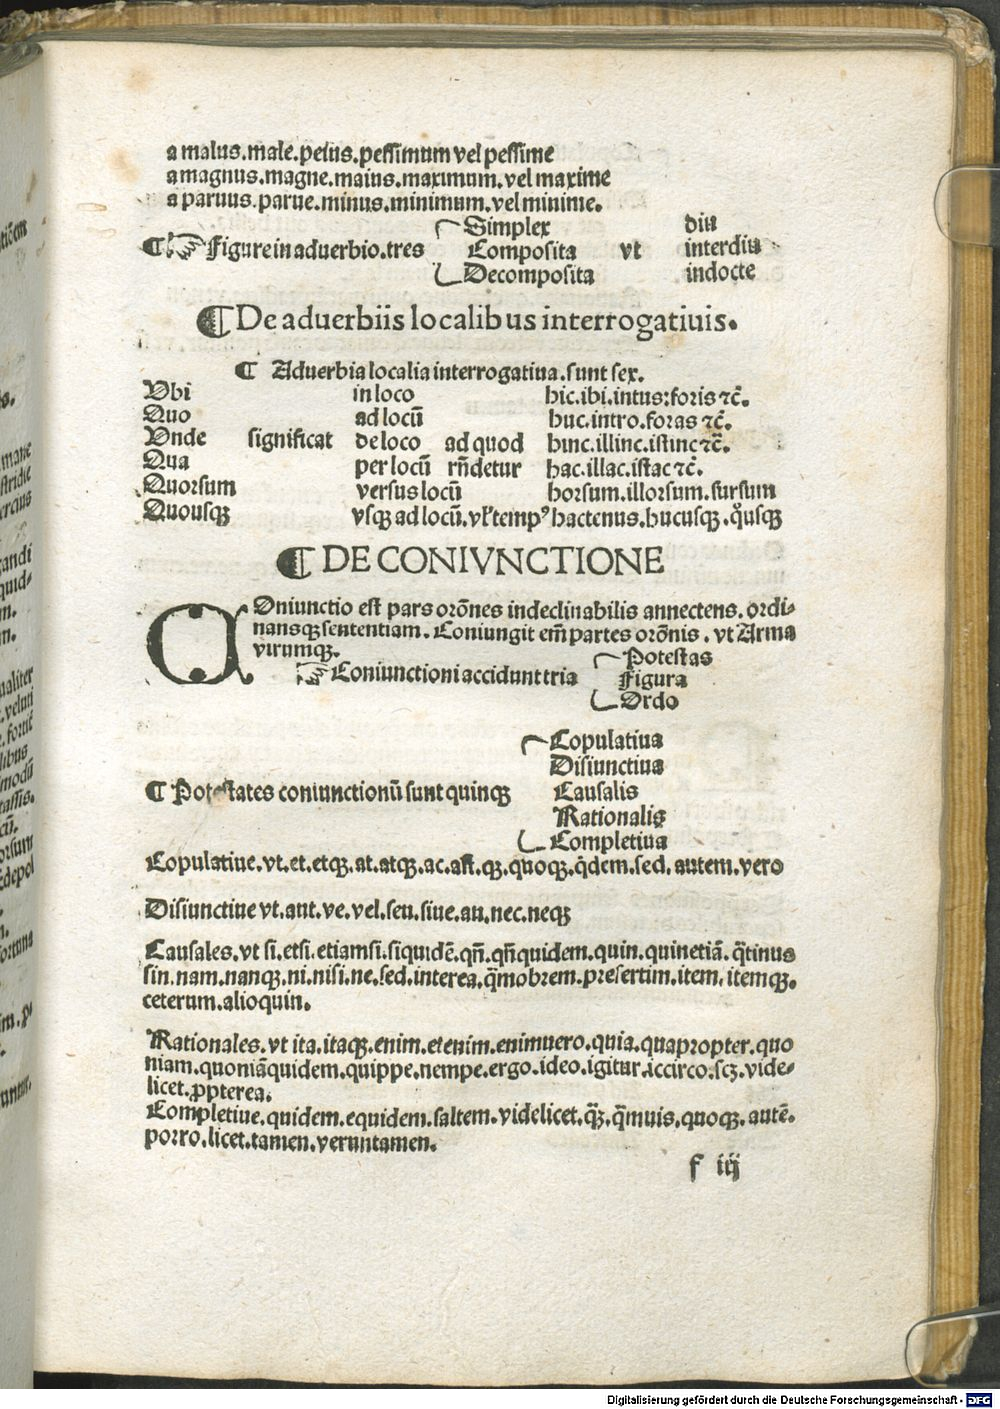 a malus.male.peius.pessimum vel pessime
a magnus.magne.maius.maximum.vel maxime
a paruus.parue.minus.minimum.vel minime.
Simplex diu
¶ ☞ Figure in aduerbio.tres Composita vt interdiu
Decomposita indocte
¶ De aduerbiis localibus interrogatiuis.
¶ Aduerbia localia interrogatiua.sunt sex.
Vbi in loco hic.ibi.intus:foris ⁊c̃.
Quo ad locũ huc.intro.foras ⁊c̃.
Vnde significat de loco ad quod hinc.illinc.istinc ⁊c̃.
Qua per locũ rñdetur hac.illac.istac ⁊c̃.
Quorsum versus locũ horsum.illorsum.sursum
Quousqꝫ vsqꝫ ad locũ.vl̓ tempꝰ hactenus.hucusqꝫ.qͦusqꝫ
¶ DE CONIVNCTIONE
COniunctio est pars orõnes indeclinabilis annectens.ordi-
nansqꝫ sententiam. Coniungit em̃ partes orõnis. vt Arma
virumqꝫ. Potestas
☞ Coniunctioni accidunt tria Figura
Ordo
Copulatiua
Disiunctiua
¶ Potestates coniunctionũ sunt quinqꝫ Causalis
Rationalis
Completiua
Copulatiue.vt.et.etqꝫ.at.atqꝫ.ac.ast.qꝫ.quoqꝫ.q̃dem.sed.autem.vero
Disiunctiue vt.aut.ve.vel.seu.siue.an.nec.neqꝫ
Causales.vt si.etsi.etiamsi.siquidẽ.qñ.qñquidem.quin.quinetiã.q̃tinus
sin.nam.nanqꝫ.ni.nisi.ne.sed.interea.q̃mobrem.presertim.item.itemqꝫ.
ceterum.alioquin.
Rationales.vt ita.itaqꝫ.enim.etenim.enimuero.quia.quapropter.quo
niam.quoniãquidem.quippe.nempe.ergo.ideo.igitur.iccirco.scꝫ.vide-
licet.ꝓpterea.
Completiue.quidem.equidem.saltem.videlicet.q̃ꝫ.q̃muis.quoqꝫ.autẽ.
porro.licet.tamen.veruntamen.
f iij
Digitalisierung gefördert durch die Deutsche Forschungsgemeinschaft - DFG